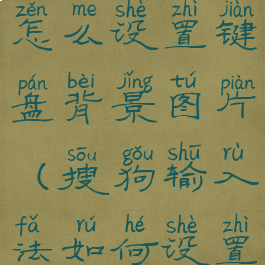 zěn me shè zhì jiàn
怎么设置键
pán bèi jǐng tú piàn
盘背景图片
sōu gǒu shū rù
（搜狗输入
fǎ rú hé shè zhì
法如何设置